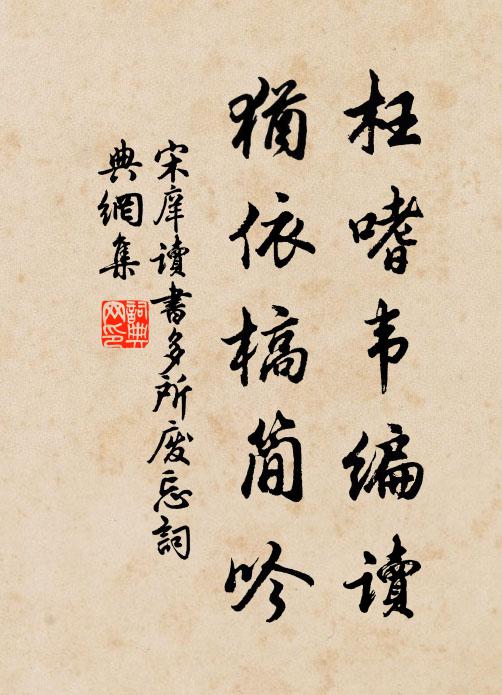 枉嗜韦编读
犹依槁简吟
宋庠读书多所废忘词
典網集
詞典
网印